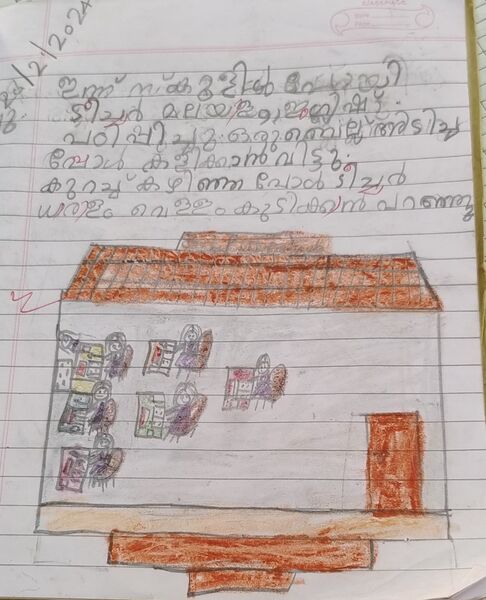 /2/2024
ഇന്ന് സ്കൂളിൽ പോയി
ടീച്ചർ മലയളം, ഇഗ്ലീഷ്
പഠിപ്പിച്ചു. ഒരു ബെല്ല് അടിച്ച
പ്പോൾ കളിക്കാൻ വിട്ടു.
കുറച്ച് കഴിഞ്ഞ പോൾ ടീച്ചർ
ധരളം വെള്ളം കുടിക്കൻ പറഞ്ഞു